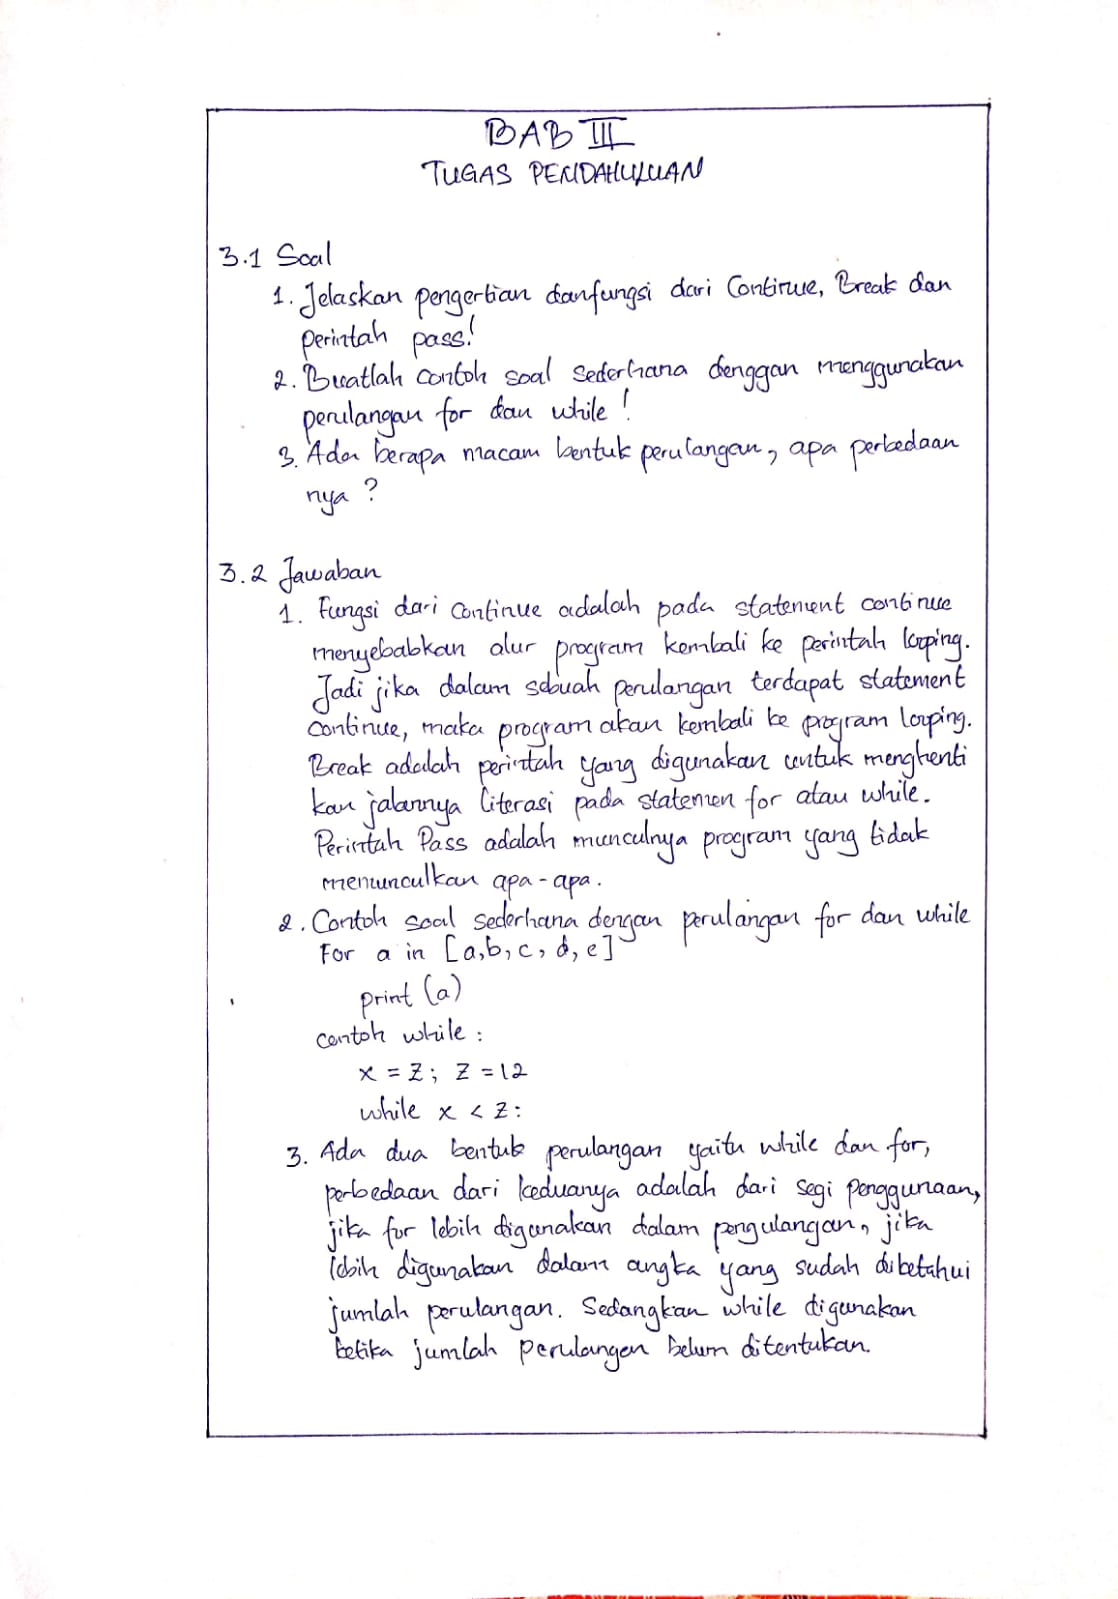 BAB III
TUGAS PENDAHULUAN
3.1 Soal
1. Jelaskan pengertian danfungsi dari Continue, Break dan
perintah pass!
2. Buatlah contoh soal sederhana denggan menggunakan
perulangan for dan while !
3. Ada berapa macam bentuk perulangan, apa perbedaan
nya ?
3.2 Jawaban
1. Fungsi dari continue adalah pada statement continue
menyebabkan alur program kembali ke perintah looping.
Jadi jika dalam sebuah perulangan terdapat statement
continue, maka program akan kembali ke program looping.
Break adalah perintah yang digunakan untuk menghenti
kan jalannya literasi pada statemen for atau while.
Perintah Pass adalah munculnya program yang tidak
memunculkan apa-apa.
2. Contoh soal sederhana dengan perulangan for dan while
For a in [a,b,c,d,e]
print (a)
contoh while :
x = z; z = 12
while x < z:
3. Ada dua bentuk perulangan yaitu while dan for,
perbedaan dari keduanya adalah dari segi penggunaan,
jika for lebih digunakan dalam pengulangan, jika
lebih digunakan dalam angka yang sudah diketahui
jumlah perulangan. Sedangkan while digunakan
ketika jumlah perulangan belum ditentukan.